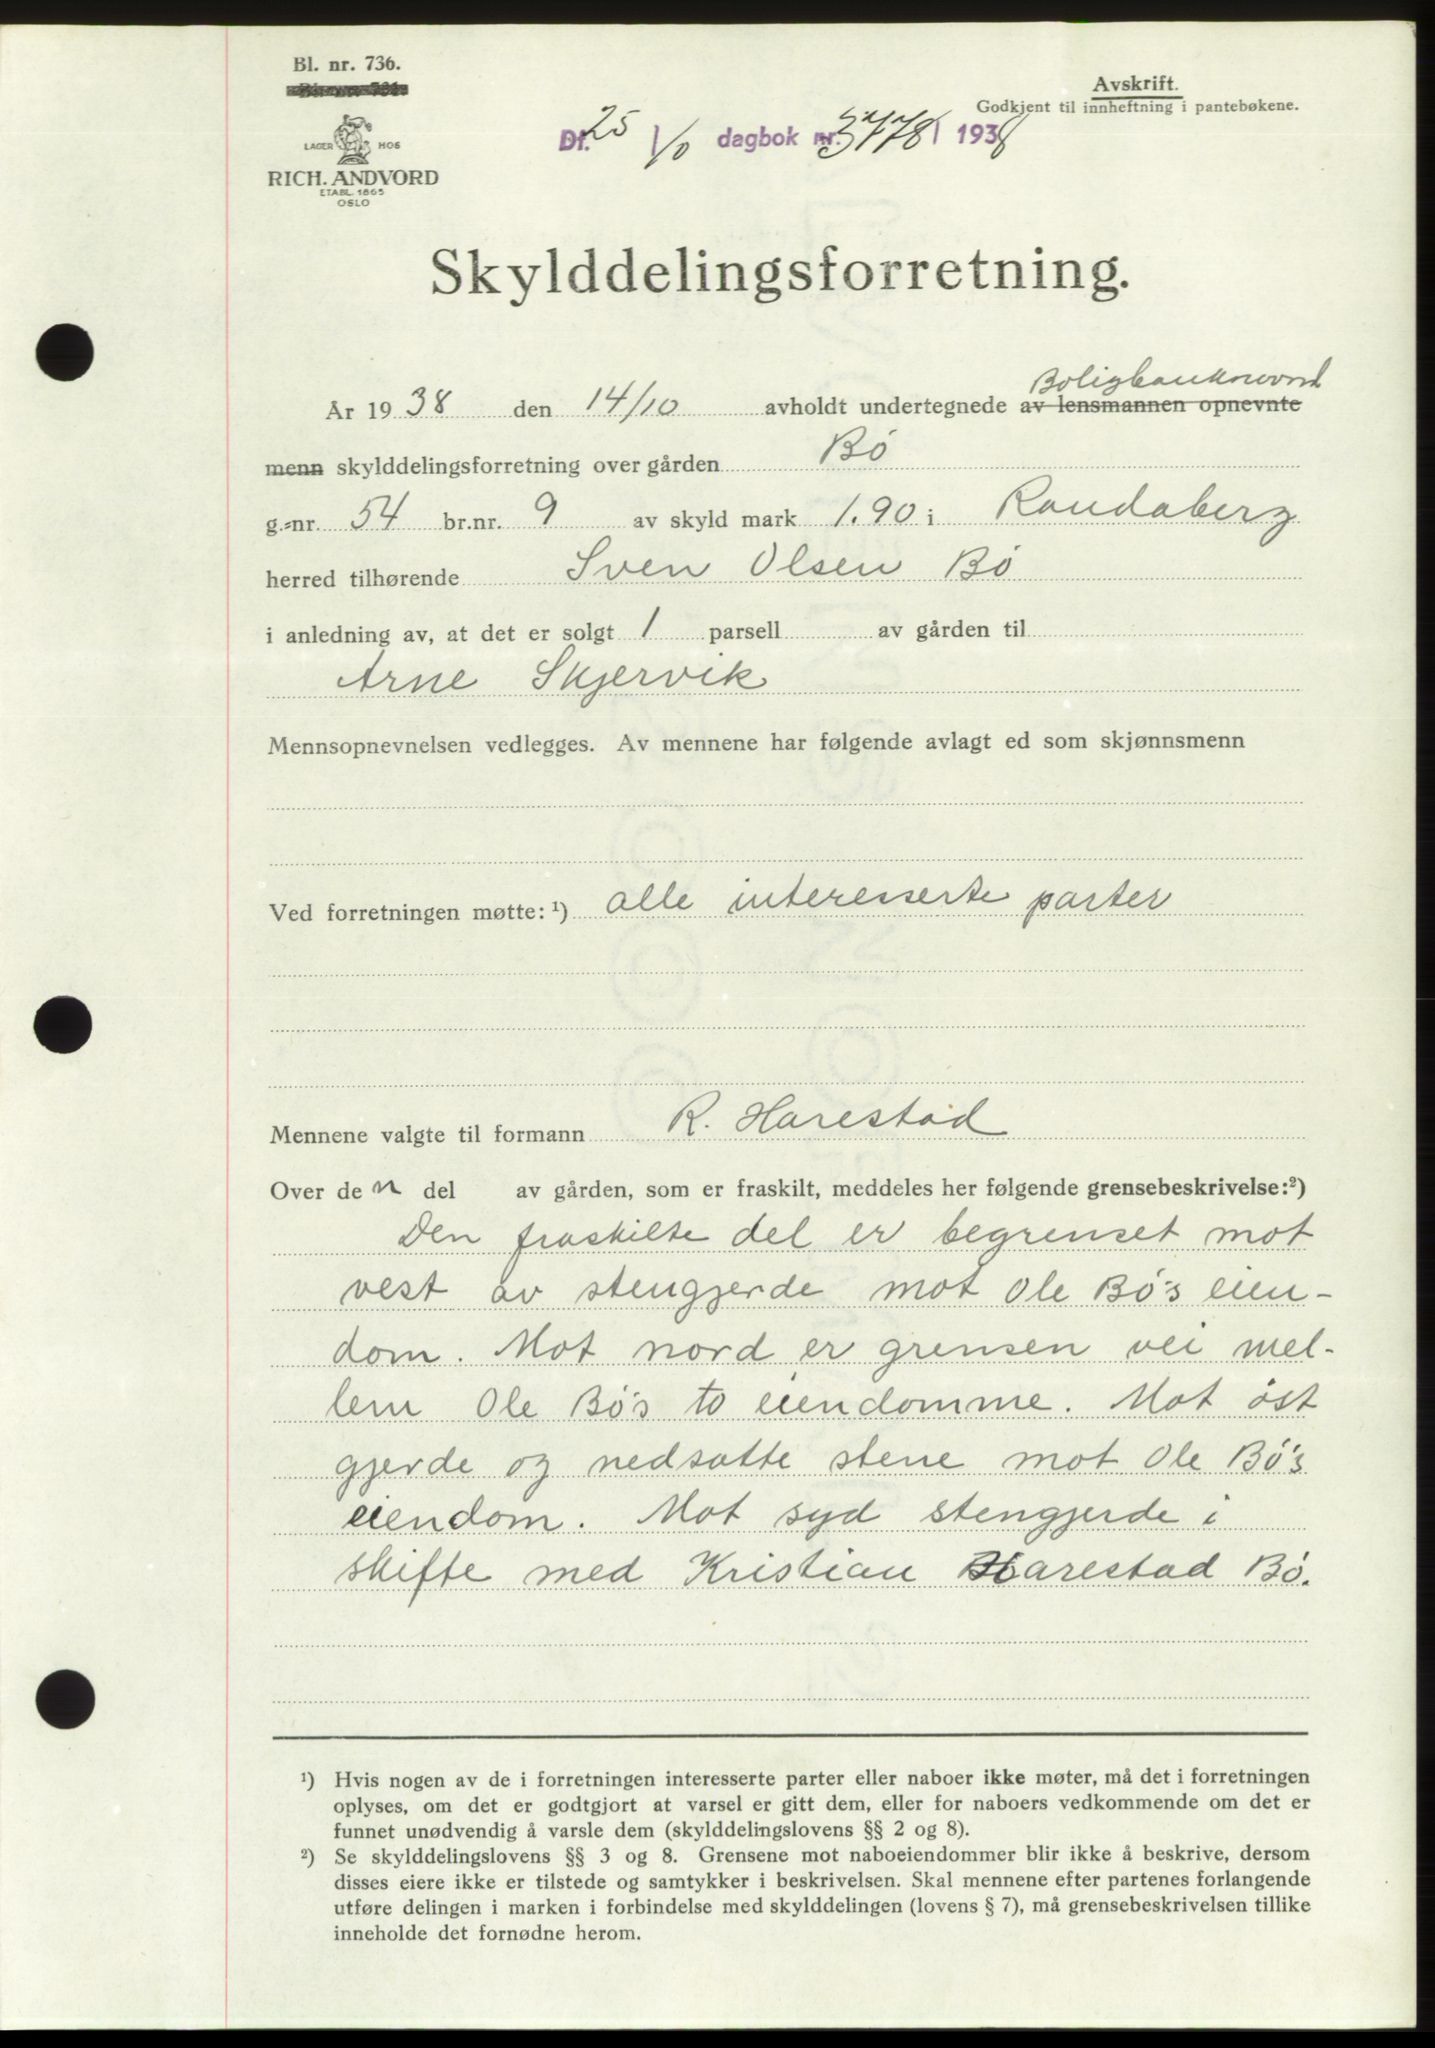 Bl. nr. 736.
Avskrift.
Godkjent til innheftning i pantebøkene.
Df. 25 1/0 dagbok nr. 3778 1938
LAGER HOS
RICH. ANDVORD
ETABL. 1865
OSLO
Skylddelingsforretning.
Boligbanknevnd
År 1938 den 14/10 avholdt undertegnede av lensmannen opnevnte
menn skylddelingsforretning over gården Bø
g.-nr. 54 br.nr. 9 av skyld mark 1.90 i Randaberg
herred tilhørende Sven Olsen Bø
i anledning av, at det er solgt 1 parsell av gården til
Arne Skjervik
Mennsopnevnelsen vedlegges. Av mennene har følgende avlagt ed som skjønnsmenn
Ved forretningen møtte: ¹) alle interesserte parter
Mennene valgte til formann R. Harestad
Over den del av gården, som er fraskilt, meddeles her følgende grensebeskrivelse:²)
Den fraskilte del er begrenset mot
vest av stengjerde mot Ole Bø's eien-
dom. Mot nord er grensen vei mel-
lem Ole Bø's to eiendomme. Mot øst
gjerde og nedsatte stene mot Ole Bø's
eiendom. Mot syd stengjerde i
skifte med Kristian Harestad Bø.
¹) Hvis nogen av de i forretningen interesserte parter eller naboer ikke møter, må det i forretningen
oplyses, om det er godtgjort at varsel er gitt dem, eller for naboers vedkommende om det er
funnet unødvendig å varsle dem (skylddelingslovens §§ 2 og 8).
²) Se skylddelingslovens §§ 3 og 8. Grensene mot naboeiendommer blir ikke å beskrive, dersom
disses eiere ikke er tilstede og samtykker i beskrivelsen. Skal mennene efter partenes forlangende
utføre delingen i marken i forbindelse med skylddelingen (lovens § 7), må grensebeskrivelsen tillike
inneholde det fornødne herom.